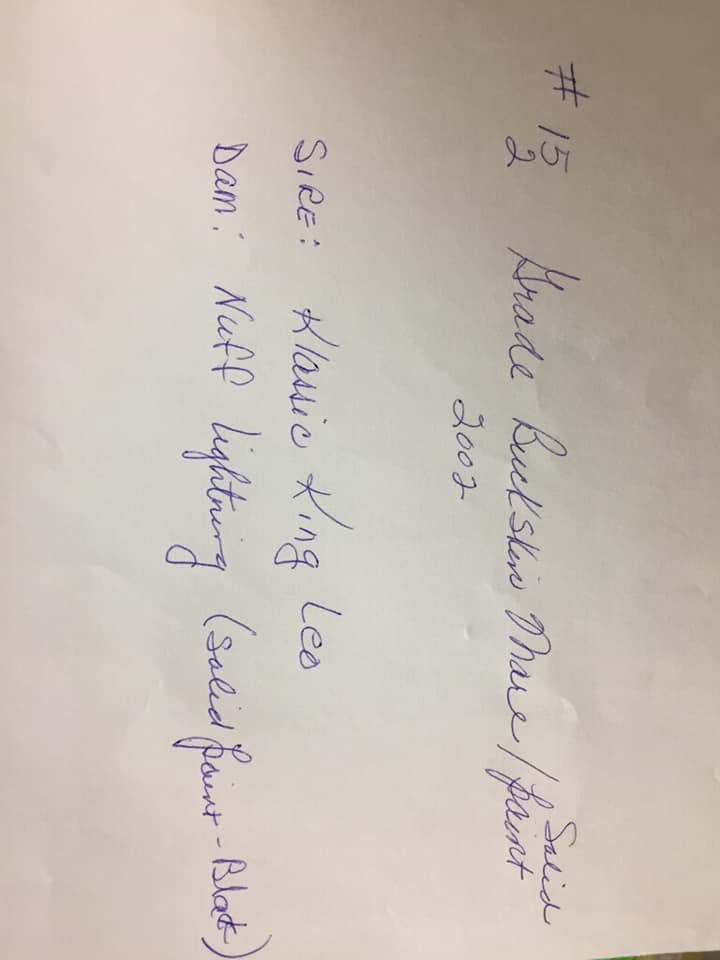 # 15
2
Grade Buckskin Mare / Solid Paint
2002
SIRE: Klassic King Leo
Dam: Nuff Lightning (Solid Paint - Black)